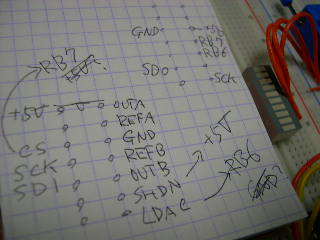 GND +5V
RB7
RB6
SDO
SCK
RB7
+5V OUTA
REFA
CS GND
SCK REFB
SDI OUTB
SHDN +5V
LDAC RB6